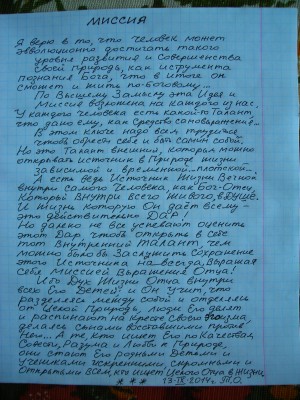 МИССИЯ
Я верю в то, что человек может
эволюционно достигать такого
уровня развития и Совершенства
своей Природы, как иструмента
познания Бога, что в итоге он
сможет и жить по-Божьему...
По Высшему Замыслу эта Идея и
Миссия возложена на каждого из нас.
У каждого человека есть какой-то Талант,
что дано ему, как средство
В этом ключе надо всем трудиться,
чтобы обрести себя и быть самим собой.
Но это Талант внешний, которым можно
открывать источник в Природе жизни
зависимой и временной... плотской...
А есть ведь Источник Жизни Вечной
внутри самого Человека, как Бог-Отец,
Который внутри всего живого, в Душе.
И Жизнь которую Он даёт всему -
это действительно Дар!
Но далеко не все успевают оценить
этот Дар чтобы открыть в себе
тот Внутренний Талант, чем
можно было бы заслужить Сохранение
этого Источника навсегда, выражая
себя Миссией Выражения Отца!
Ибо Дух Жизни Отца внутри
всех Его Детей и Он Учит, что
разделяясь между собой и отделяясь
от Целой Природы, люди Его делят
и распинают на кресте своего Эгоизма,
делаясь сынами восставшими против
Него... А те, кто ищет Его по Качествам
Совести, Разума и Любви к Природе,
они станут Его родными Детьми и
Учениками искренними, скромными и
Открытыми всем, кто ищет Целого Отца в Жизни.
* * * 13-IX-2014г. П.О.